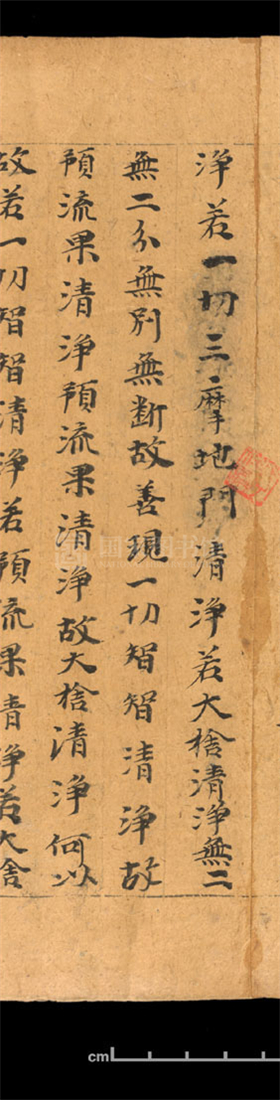 淨若一切三摩地門清淨若大捨清淨無二
無二分無別無斷故善現一切智智清淨故
預流果清淨預流果清淨故大捨清淨何以
故若一切智智清淨若預流果清淨若大捨
cm